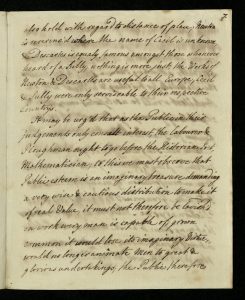 7
also hold with regard to distance of place, Newton
is reverenced where the name of Cecil is unknown
Descartes is equally famous amongst those who never
heard of a Sully, nothing is more just the Works of
Newton & Descartes are useful to all Europe, Cecil
& Sully were only serviceable to their respective
countrys.
It may be urg'd that as the Publick in their
judgements only consult interest, the Labourer &
Ploughman ought to go before the Historian Poet
Mathematician, to this we must observe that
Public esteem is an imaginary treasure demanding
a very wise & cautious distribution to make it
of real Value, it must not therefore be lavish'd
on work every man is capable of, grown
common it would lose its imaginary Virtue,
would no longer animate Men to great &
glorious undertakings the Public therefore